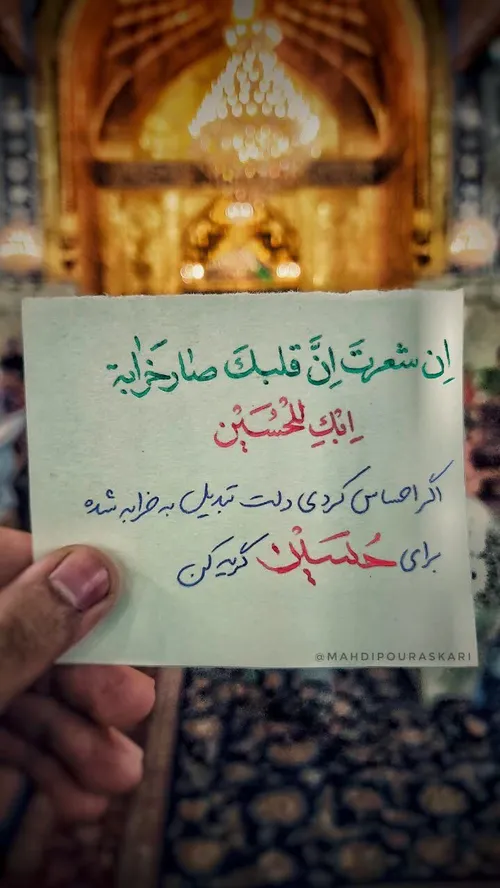 اِن شعرتَ اِنَّ قلبكَ صٰار خَرٰابة
اِبْكِ لِلْحُسَيْن
اگر احساس کردی دلت تبدیل به خرابه شده
برای حُسَیْن گریه کن
@MAHDIPOURASKARI